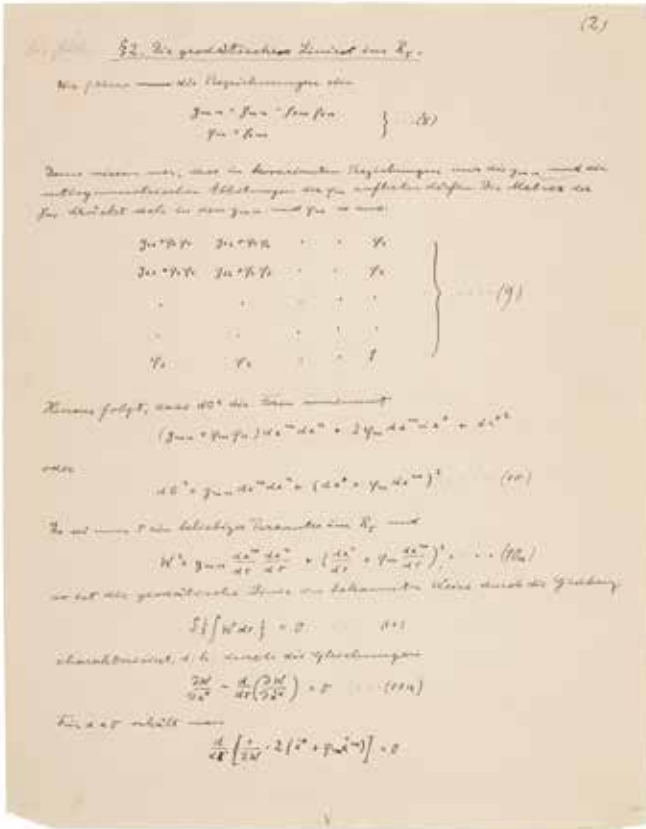 (2)
§2. Die geodätischen Linien im R₅.
Wir führen die Bezeichnungen ein
gₘₙ = γₘₙ - γ₅ₘ γ₅ₙ
φₘ = γ₅ₘ } (8)
Dann wissen wir, dass in Beziehungen nur die gₘₙ und die
antisymmetrischen Ableitungen der φₘ auftreten dürfen. Die Matrix der
drückt sich in den gₘₙ und φₘ so aus:
g₁₁+φ₁φ₁ g₁₂+φ₁φ₂ . . φ₁
g₂₁+φ₂φ₁ g₂₂+φ₂φ₂ . . φ₂
. . . . .
. . . . . } (9)
φ₁ φ₂ . . 1
Hieraus folgt, dass dσ² die Form annimmt
(gₘₙ + φₘφₙ) dxᵐ dxⁿ + 2φₘ dxᵐ dx⁵ + dx⁵²
oder
dσ² = gₘₙ dxᵐ dxⁿ + (dx⁵ + φₘ dxᵐ)² (10)
Es sei nun τ ein beliebiger Parameter im R₅ und
W² = gₘₙ dxᵐ/dτ dxⁿ/dτ + (dx⁵/dτ + φₘ dxᵐ/dτ)² (10a)
so ist die geodätische Linie in bekannter Weise durch die Gleichung
δ{∫W dτ} = 0 (11)
charakterisiert, d. h. durch die Gleichungen
∂W/∂xᵅ - d/dτ(∂W/∂ẋᵅ) = 0 (11a)
Für α=5 erhält man
d/dτ [1/2W · 2(ẋ⁵ + φₘẋᵐ)] = 0